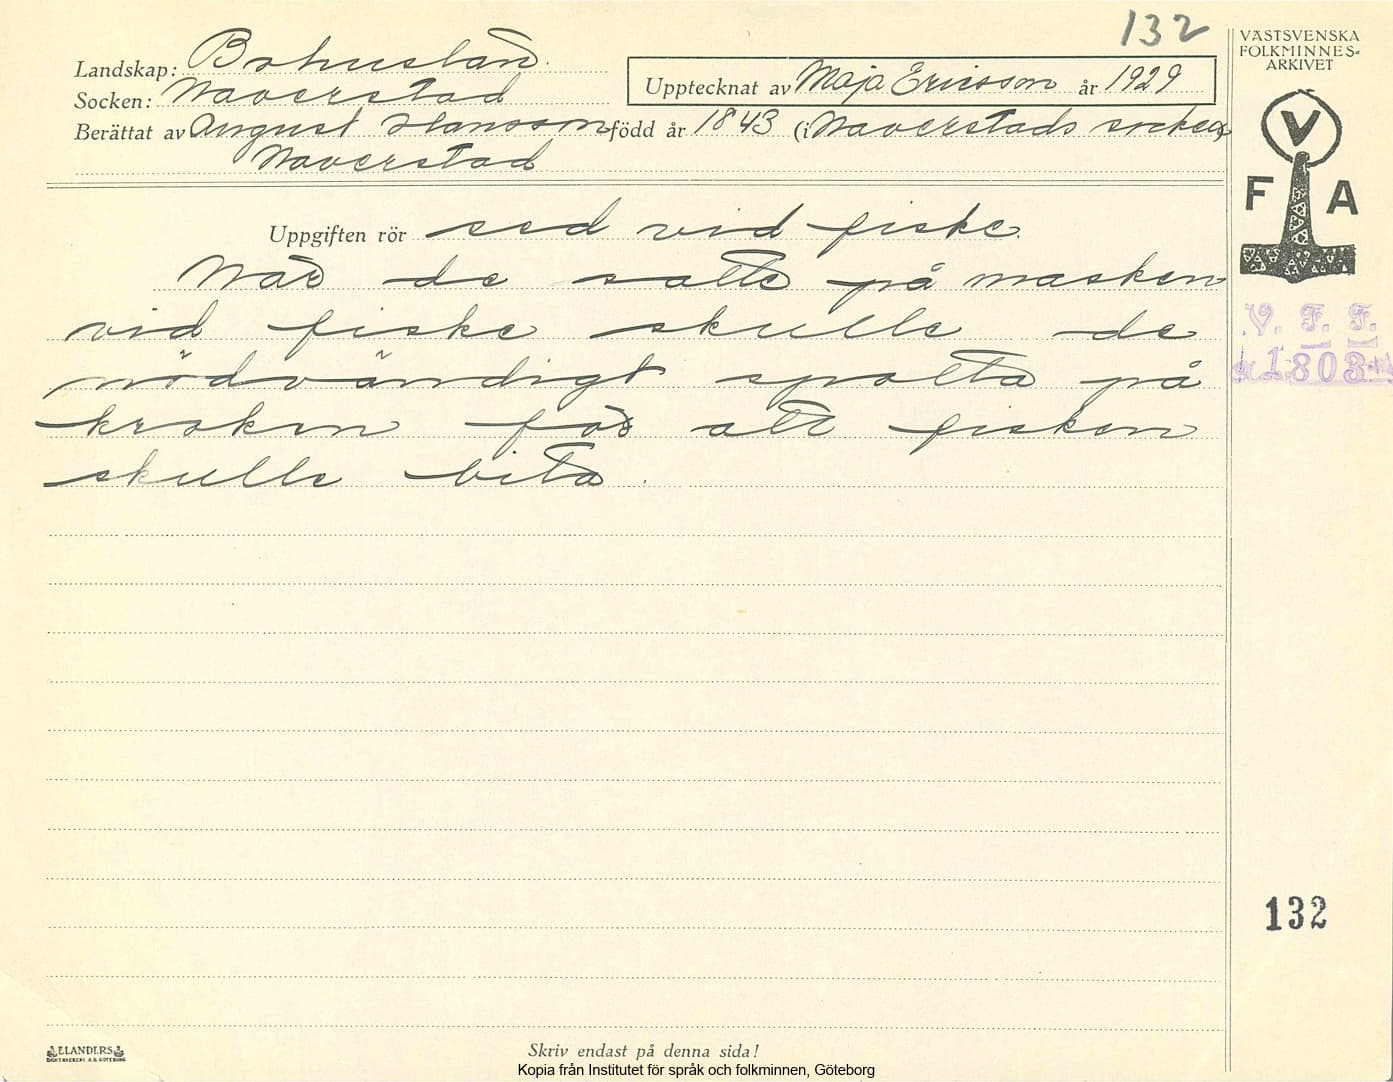 132
Landskap: Bohuslän.
Socken: Naverstad
Upptecknat av Maja Ericsson år 1929
Berättat av August Hansson född år 1843 (i Naverstads socken)
Naverstad
Uppgiften rör sed vid fiske.
När de satte på masken
vid fiske skulle de
nödvändigt spotta på
kroken för att fisken
skulle bita.
VÄSTSVENSKA
FOLKMINNES-
ARKIVET
V
F A
V. F. F.
1803
132
ELANDERS
BOKTRYCKERI A.B. GÖTEBORG
Skriv endast på denna sida!
Kopia från Institutet för språk och folkminnen, Göteborg